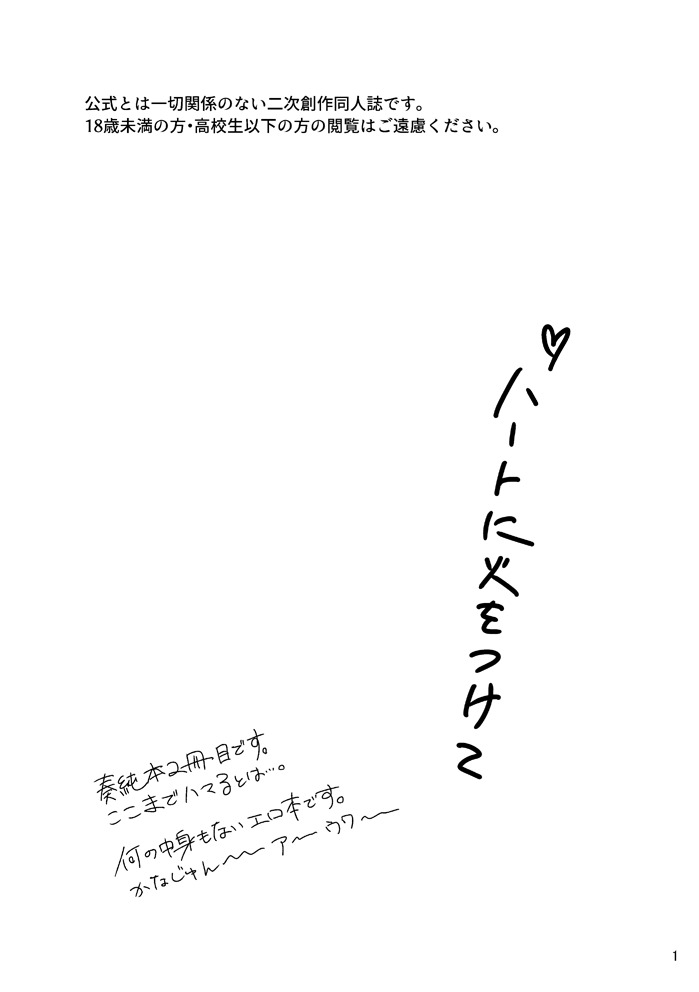 公式とは一切関係のない二次創作同人誌です。
18歳未満の方・高校生以下の方の閲覧はご遠慮ください。
♡ハートに火をつけて
奏純本2冊目です。
ここまでハマるとは…。
何の中身もないエロ本です。
かなじゅん〜〜アー〜ウワ〜〜
1